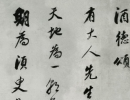 酒德頌
有大人先生
天地為一朝
期為須臾